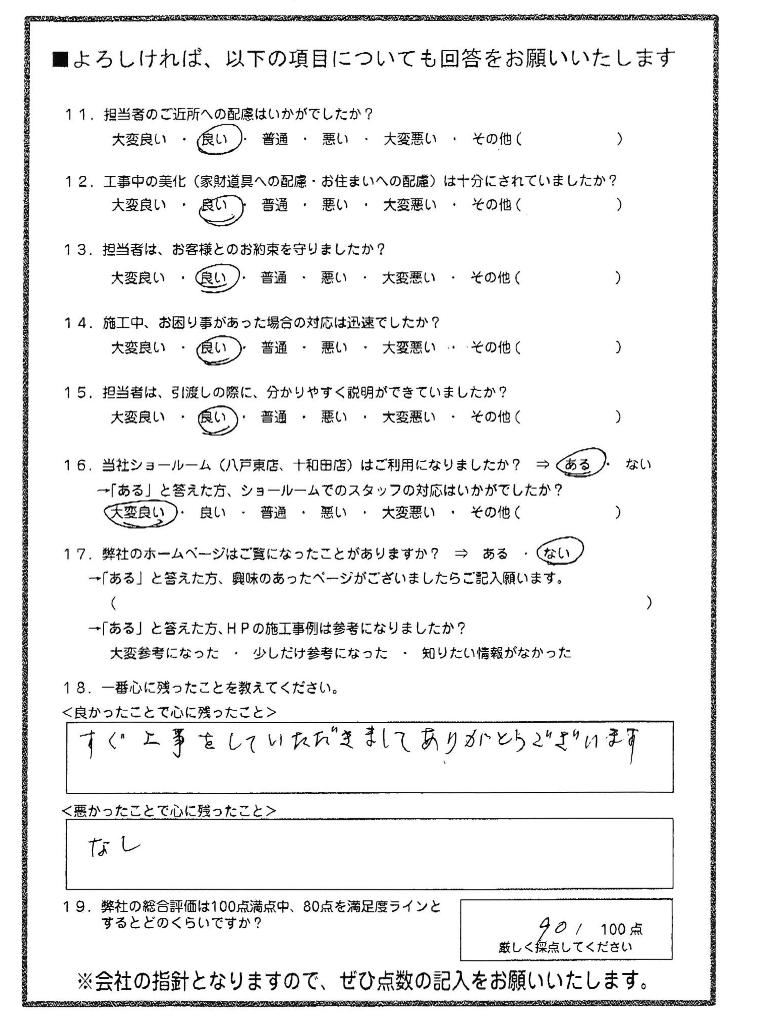 ■よろしければ、以下の項目についても回答をお願いいたします
11．担当者のご近所への配慮はいかがでしたか？
大変良い ・ 良い ・ 普通 ・ 悪い ・ 大変悪い ・ その他（ ）
12．工事中の美化（家財道具への配慮・お住まいへの配慮）は十分にされていましたか？
大変良い ・ 良い ・ 普通 ・ 悪い ・ 大変悪い ・ その他（ ）
13．担当者は、お客様とのお約束を守りましたか？
大変良い ・ 良い ・ 普通 ・ 悪い ・ 大変悪い ・ その他（ ）
14．施工中、お困り事があった場合の対応は迅速でしたか？
大変良い ・ 良い ・ 普通 ・ 悪い ・ 大変悪い ・ その他（ ）
15．担当者は、引渡しの際に、分かりやすく説明ができていましたか？
大変良い ・ 良い ・ 普通 ・ 悪い ・ 大変悪い ・ その他（ ）
16．当社ショールーム（八戸東店、十和田店）はご利用になりましたか？ ⇒ ある ・ ない
→「ある」と答えた方、ショールームでのスタッフの対応はいかがでしたか？
大変良い ・ 良い ・ 普通 ・ 悪い ・ 大変悪い ・ その他（ ）
17．弊社のホームページはご覧になったことがありますか？ ⇒ ある ・ ない
→「ある」と答えた方、興味のあったページがございましたらご記入願います。
（ ）
→「ある」と答えた方、ＨＰの施工事例は参考になりましたか？
大変参考になった ・ 少しだけ参考になった ・ 知りたい情報がなかった
18．一番心に残ったことを教えてください。
＜良かったことで心に残ったこと＞
すぐ工事をしていただきましてありがとうございます
＜悪かったことで心に残ったこと＞
なし
19．弊社の総合評価は100点満点中、80点を満足度ラインと
するとどのくらいですか？
90/ 100点
厳しく採点してください
※会社の指針となりますので、ぜひ点数の記入をお願いいたします。